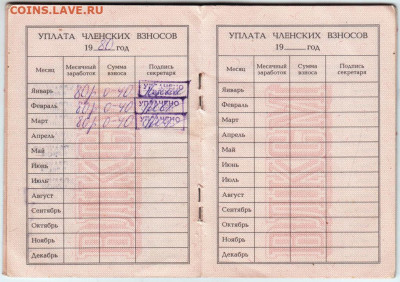 COINS.LAVE.RU
УПЛАТА ЧЛЕНСКИХ ВЗНОСОВ
19 80 год
Месяц Месячный заработок Сумма взноса Подпись секретаря
Январь 80р 0-40 УПЛАЧЕНО
Февраль 80р 0-40 УПЛАЧЕНО
Март 80р 0-40 УПЛАЧЕНО
Апрель
Май
Июнь
Июль
Август
Сентябрь
Октябрь
Ноябрь
Декабрь
УПЛАТА ЧЛЕНСКИХ ВЗНОСОВ
19 год
Месяц Месячный заработок Сумма взноса Подпись секретаря
Январь
Февраль
Март
Апрель
Май
Июнь
Июль
Август
Сентябрь
Октябрь
Ноябрь
Декабрь
ВЛКСМ
ВЛКСМ